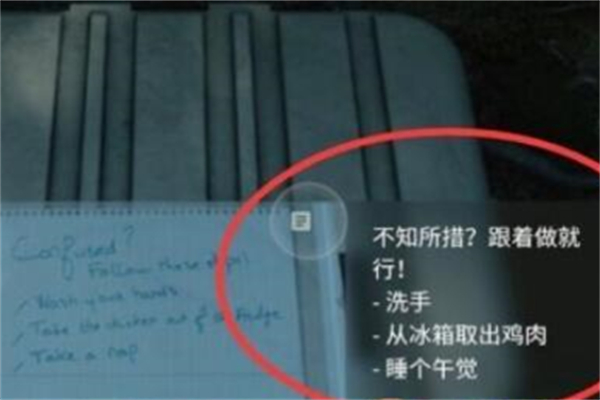 Confused?
Follow these
Wash your hands
Take the chicken out of the fridge
Take a nap
不知所措？跟着做就
行！
- 洗手
- 从冰箱取出鸡肉
- 睡个午觉